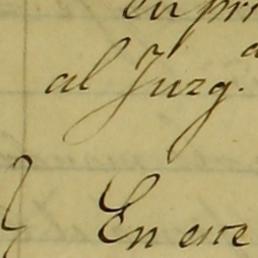 en pri
al Juzg.
En este